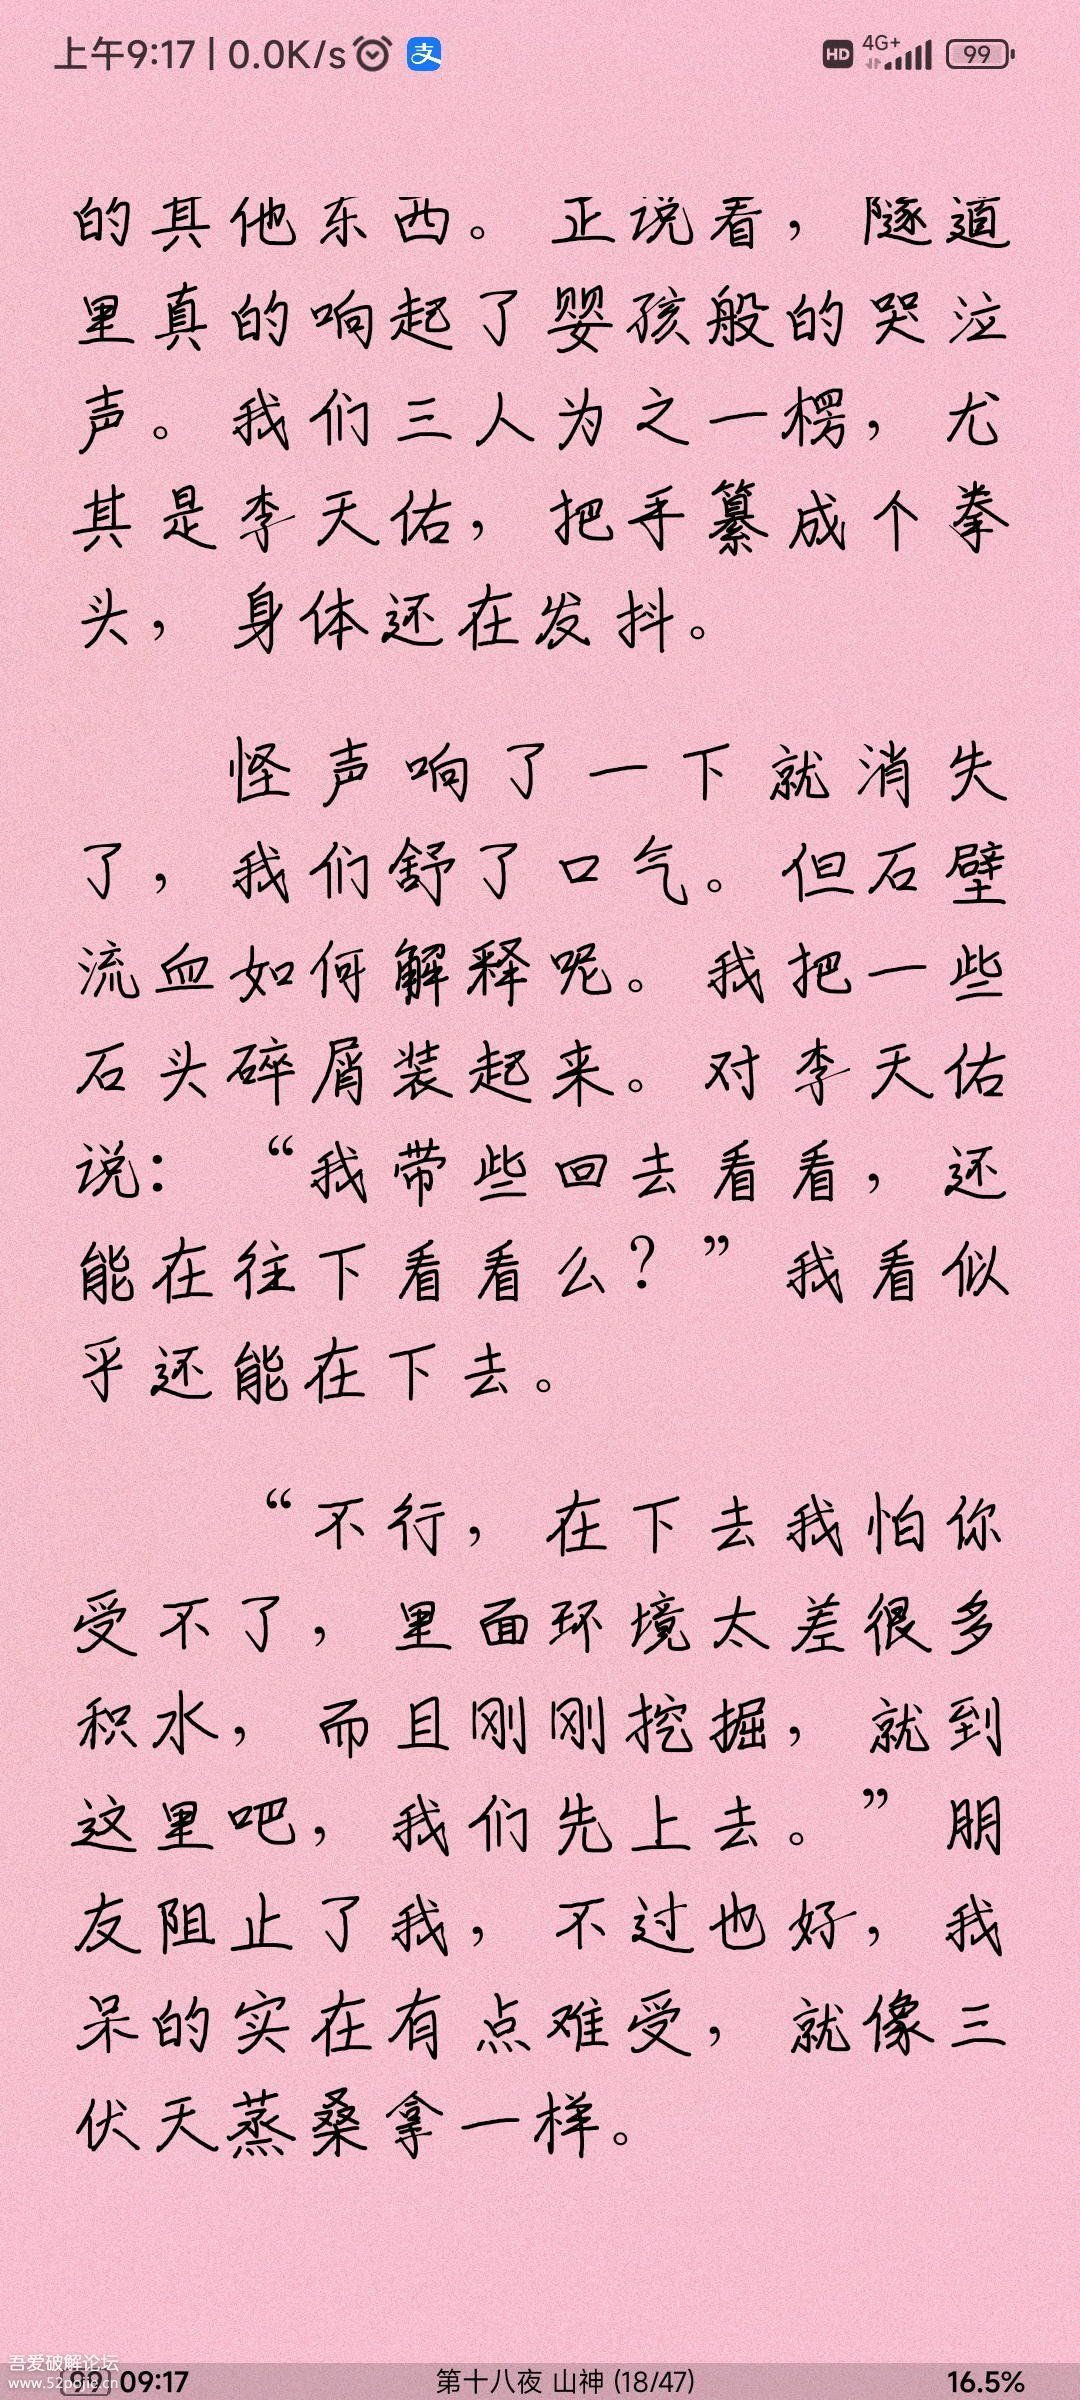 上午9:17 | 0.0K/s 支 HD 4G+ 99
的其他东西。正说着，隧道
里真的响起了婴孩般的哭泣
声。我们三人为之一楞，尤
其是李天佑，把手纂成个拳
头，身体还在发抖。
怪声响了一下就消失
了，我们舒了口气。但石壁
流血如何解释呢。我把一些
石头碎屑装起来。对李天佑
说：“我带些回去看看，还
能在往下看看么？”我看似
乎还能在下去。
“不行，在下去我怕你
受不了，里面环境太差很多
积水，而且刚刚挖掘，就到
这里吧，我们先上去。”朋
友阻止了我，不过也好，我
呆的实在有点难受，就像三
伏天蒸桑拿一样。
吾爱破解论坛
www.52pojie.cn
99 09:17 第十八夜 山神 (18/47) 16.5%